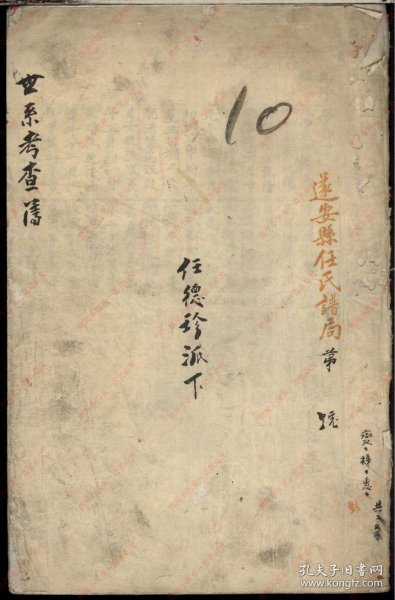 遂安縣任氏譜局第 號
10
任德珍派下
世系考查簿
孔夫子旧书网
www.kongfz.com